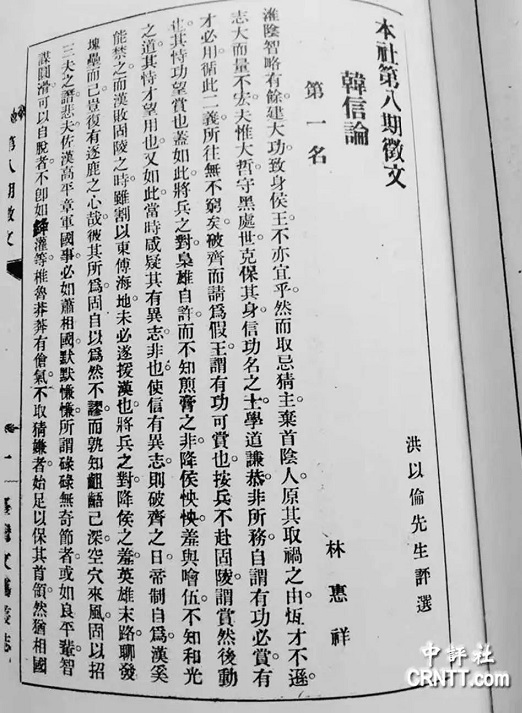 本社第八期徵文
洪以倫先生評選
韓信論
第一名　林惠祥
淮陰智略有餘建大功致身侯王不亦宜乎然而取忌猜主棄首陰人原其取禍之由恆才不遜。
志大而量不宏夫惟大哲守黑處世克保其身信功名之士學道謙恭非所務自謂有功必賞有
才必用循此二義所往無不窮矣破齊而請為假王謂有功可賞也按兵不赴固陵謂賞然後動
也其恃功望賞也蓋如此將兵之對梟雄自許而不知煎膏之非降侯怏怏羞與噲伍不知和光
之道其恃才望用也又如此當時咸疑其有異志非也使信有異志則破齊之日帝制自為漢奚
能禁之而漢敗固陵之時雖割以東傅海地未必遂援漢也將兵之對降侯之羞英雄末路聊發
塊壘而已豈復有逐鹿之心哉彼其所為固自以為然不謬而孰知齟齬已深空穴來風固以招
三夫之譖悲夫佐漢高平章軍國事必如蕭相國默默慊慊所謂碌碌無奇節者或如良平輩智
謀閎滑可以自脫者不即如絳灌等椎魯莽莽有傖氣不取猜嫌者始足以保其首領然猶相國
第八期徵文
一
臺灣文藝叢誌
中評社
CRNTT.com